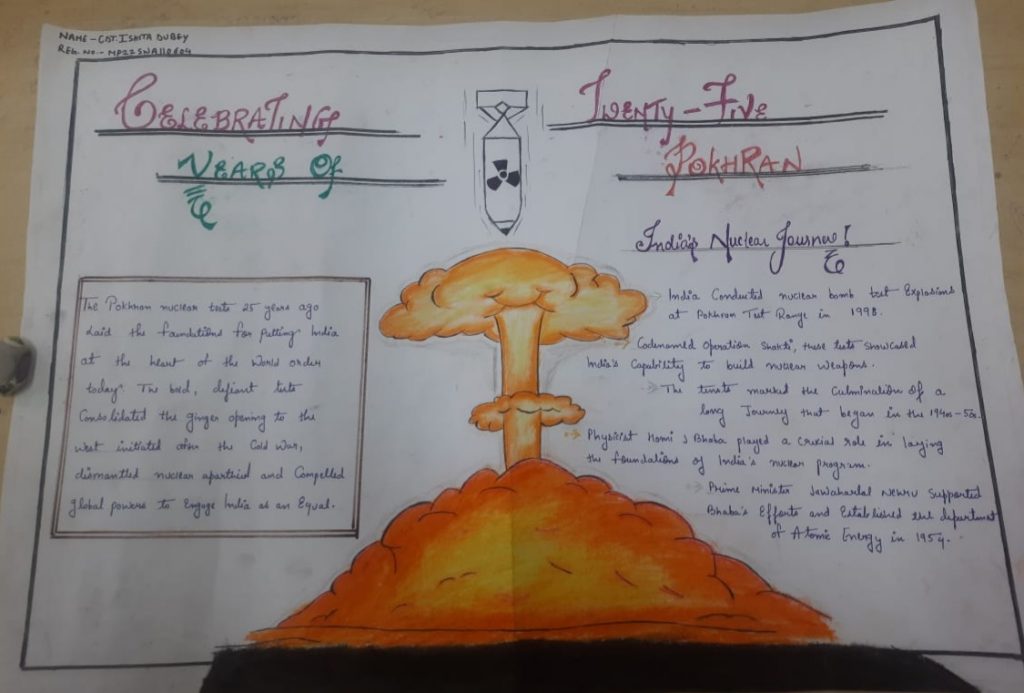 NAME - CDT. ISHITA DUBEY
REG. NO. - MP22SWA110604
CELEBRATING TWENTY-FIVE
YEARS OF POKHRAN
India's Nuclear Journey!
The Pokhran nuclear tests 25 years ago
Laid the foundations for putting India
at the heart of the World order
today. The bold, defiant tests
Consolidated the ginger opening to the
west initiated after the Cold War,
dismantled nuclear aparthied and Compelled
global powers to Engage India as an Equal.
India Conducted nuclear bomb test Explosions
at Pokhran Test Range in 1998.
Codenamed Operation Shakti, these tests showcased
India's Capability to build nuclear weapons.
The tests marked the Culmination of a
long Journey that began in the 1940s-50s.
Physicist Homi J Bhaba played a crucial role in laying
the foundations of India's nuclear program.
Prime Minister Jawaharlal NEHRU Supported
Bhaba's Efforts and Established the department
of Atomic Energy in 1954.